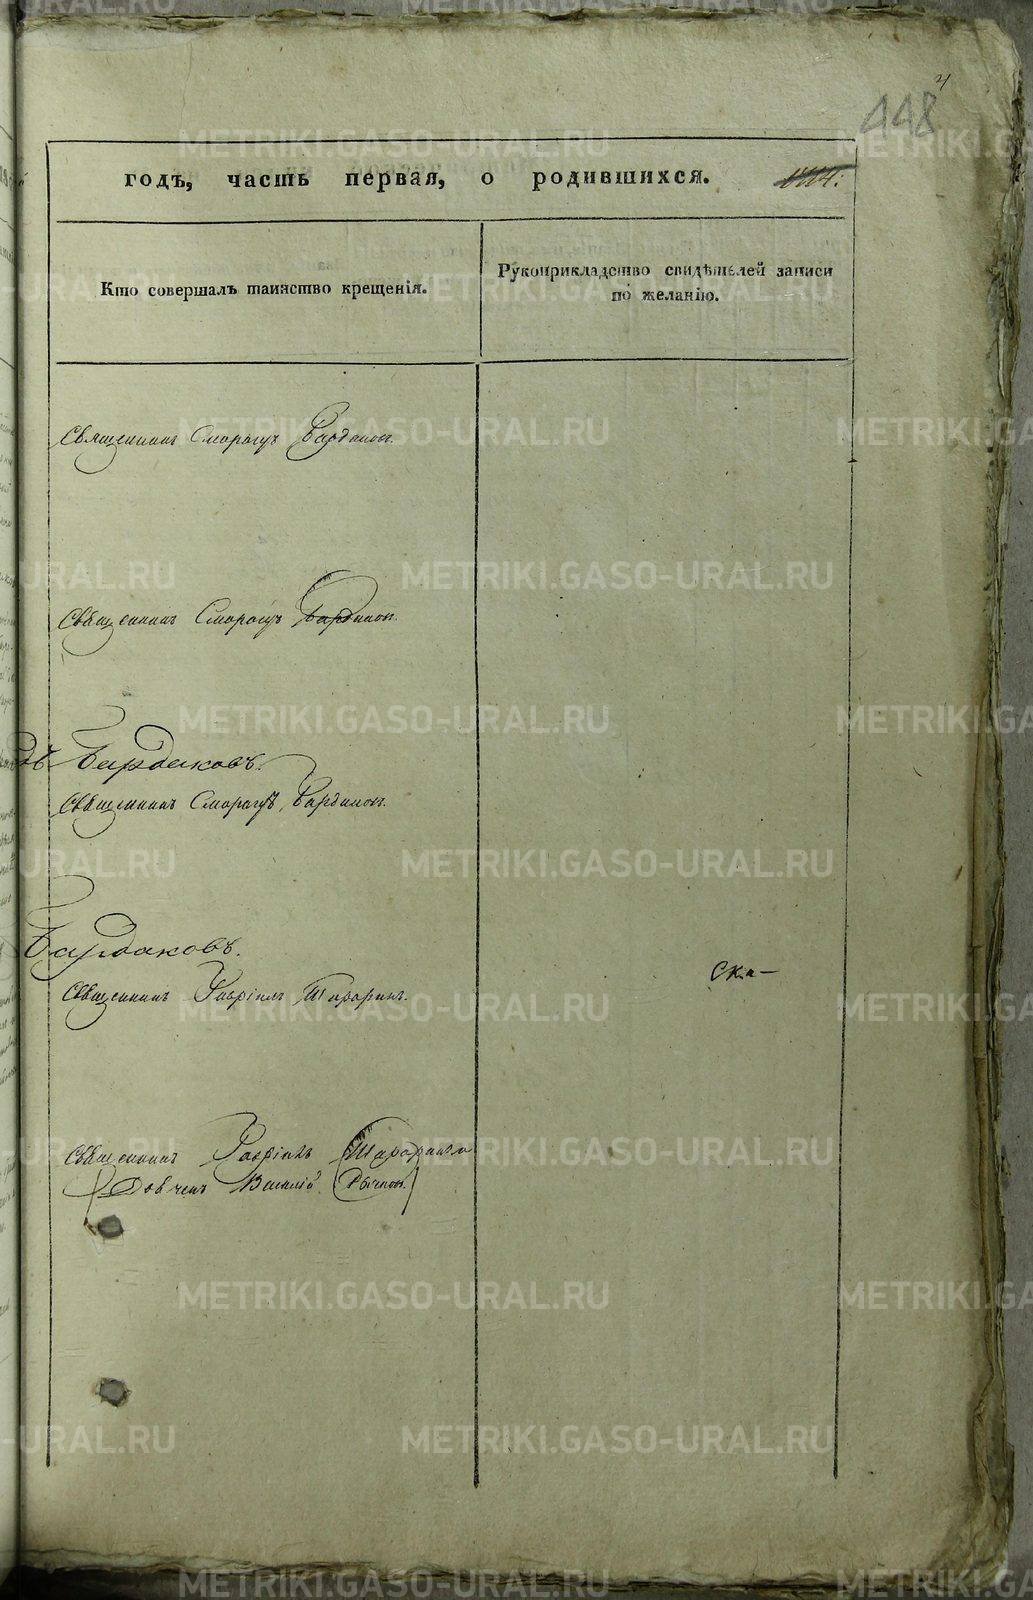 448
годъ, часть первая, о родившихся.
Кто совершалъ таинство крещенія.
Рукоприкладство свидѣтелей записи
по желанію.
Священникъ Смарагдъ Бардаков.
Священникъ Смарагдъ Бардаков.
Бардаковъ.
Священникъ Смарагдъ Бардаков.
Бардаковъ.
Ска-
Священникъ Гавріилъ
Священникъ Гавріилъ
Василій
METRIKI.GASO-URAL.RU